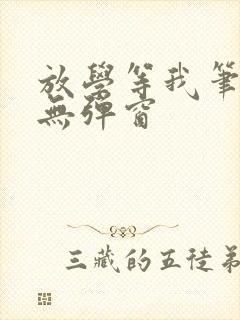 放學等我筆
無彈窗
三藏的五徒弟